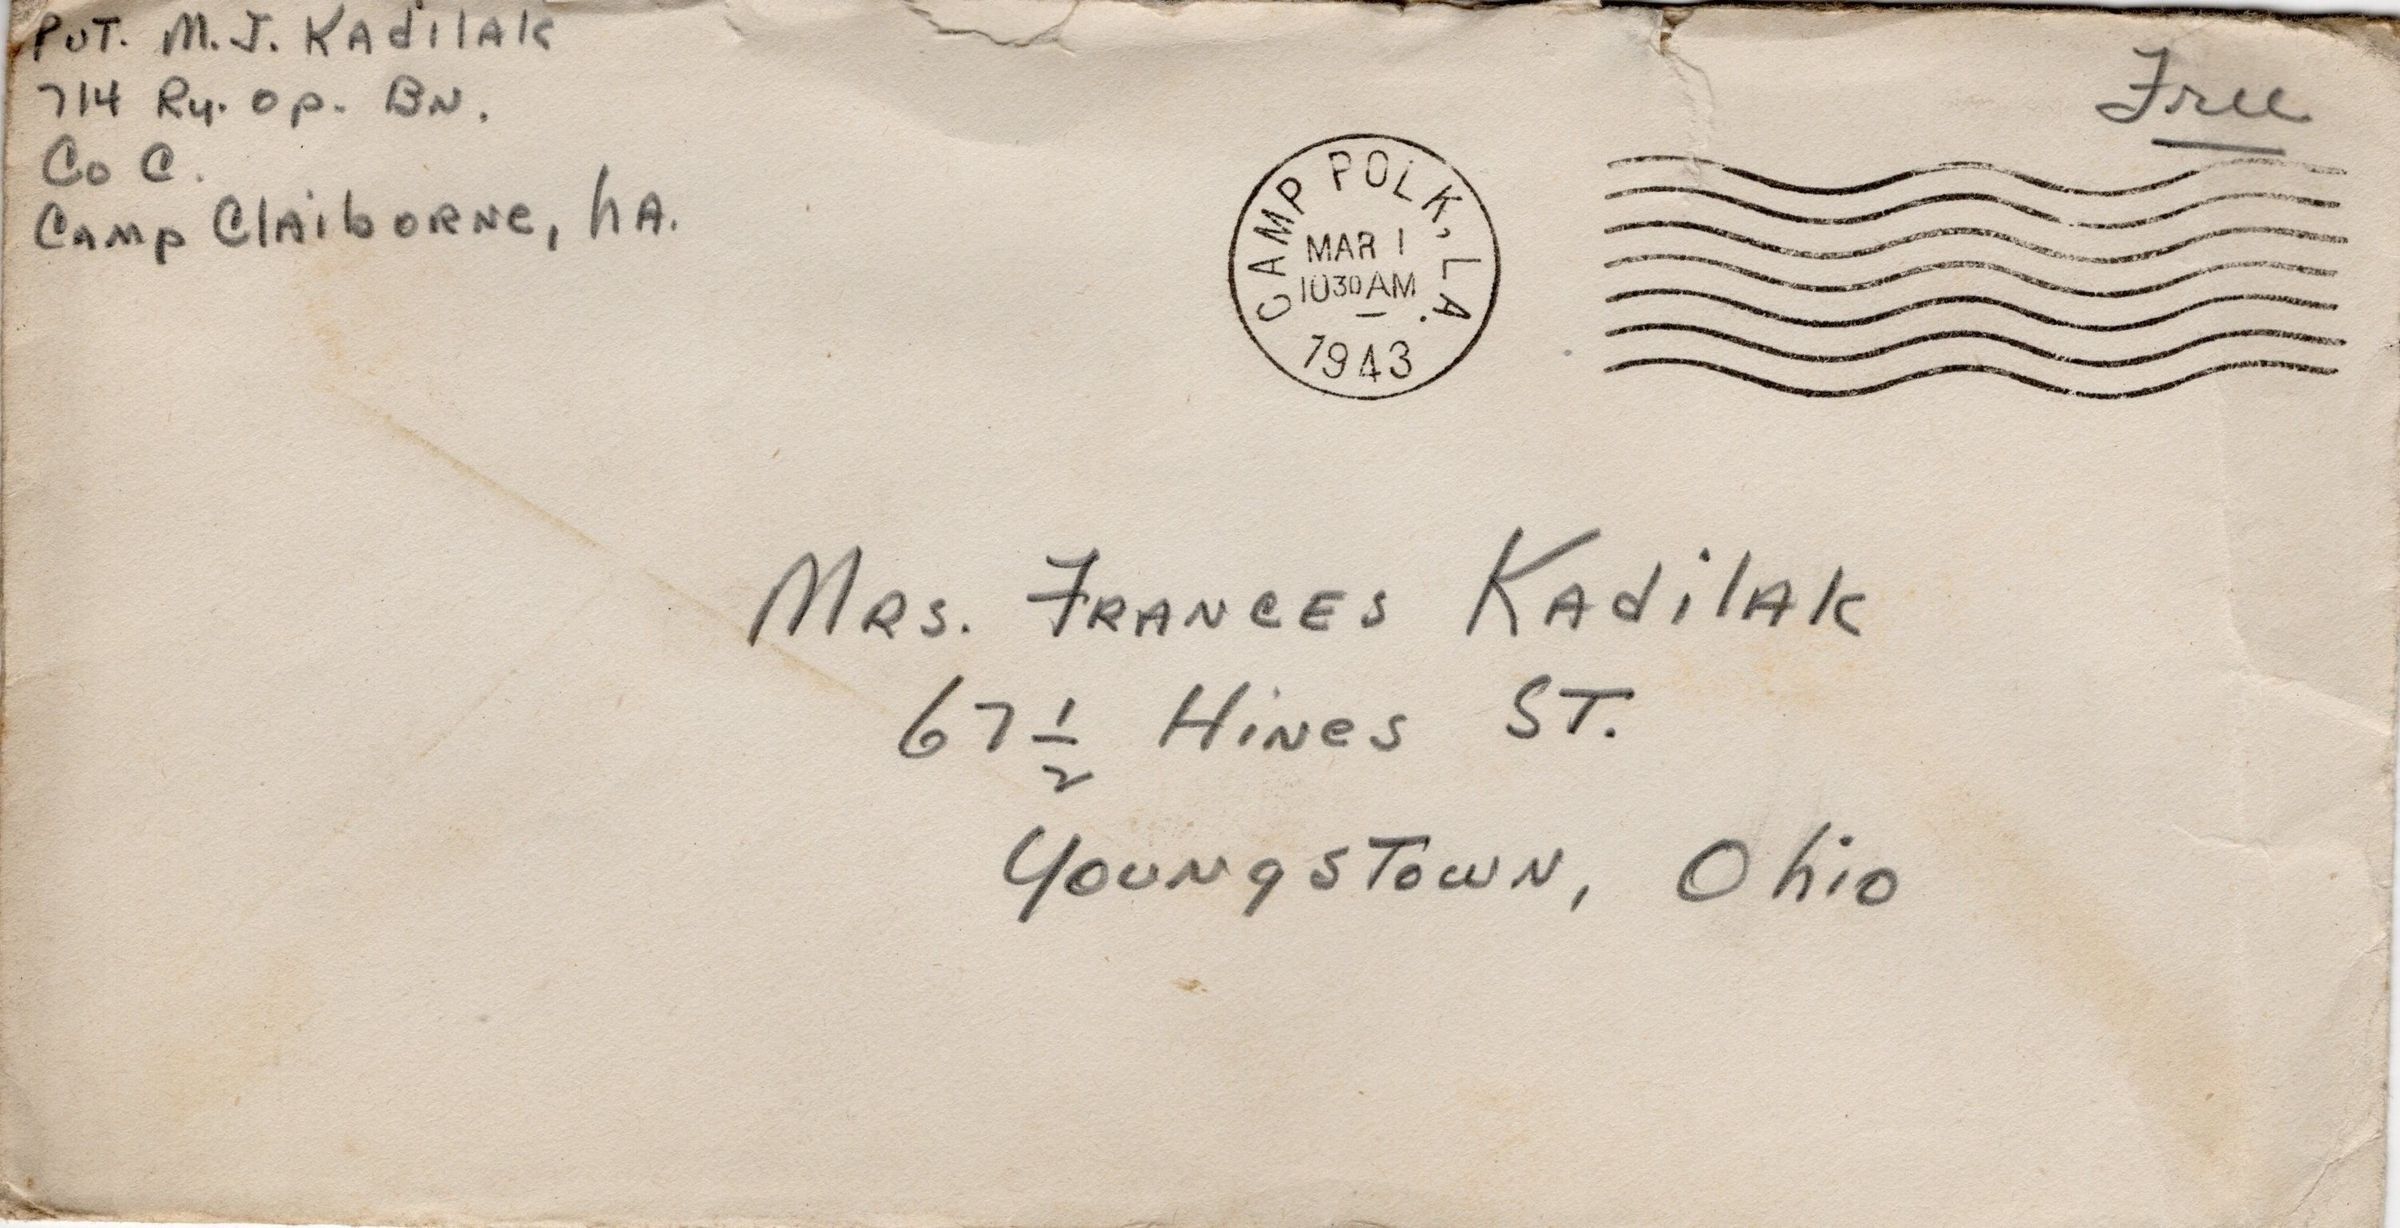 PVT. M.J. KAdilAk
714 Ry. Op. BN.
Co C.
CAMP ClAiborNe, LA.
Free
CAMP POLK, LA.
MAR 1
1030 AM
1943
MRS. FRANCES KAdilAk
67 1/2 HiNes ST.
YouNgsTowN, Ohio